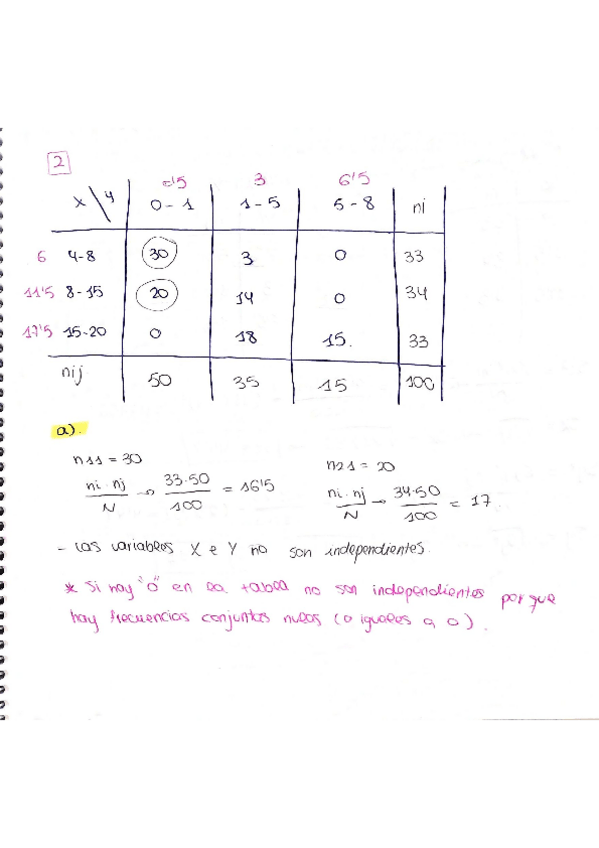 2
0'5 3 6'5
x \ y 0-1 1-5 5-8 ni
6 4-8 30 3 0 33
11'5 8-15 20 14 0 34
17'5 15-20 0 18 15. 33
nij 50 35 15 100
a).
n11 = 30 n21 = 20
ni.nj/N → 33.50/100 = 16'5 ni.nj/N → 34.50/100 = 17.
- Las variables X e Y no son independientes.
* Si hay "0" en la tabla no son independientes porque
hay frecuencias conjuntas nulas (o iguales a 0).